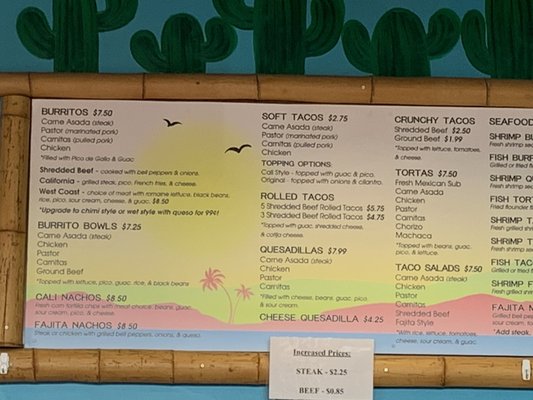 BURRITOS $7.50
Carne Asada (steak)
Pastor (marinated pork)
Carnitas (pulled pork)
Chicken
*Filled with Pico de Gallo & Guac
Shredded Beef - cooked with bell peppers & onions.
California - grilled steak, pico, French fries, & cheese.
West Coast - choice of meat with romaine lettuce, black beans,
rice, pico, sour cream, cheese, & guac. $8.50
*Upgrade to chimi style or wet style with queso for 99¢!
BURRITO BOWLS $7.25
Carne Asada (steak)
Chicken
Pastor
Carnitas
Ground Beef
*Topped with lettuce, pico, guac, rice, & black beans
CALI NACHOS $8.50
Fresh corn tortilla chips with meat choice, beans, guac,
sour cream, pico, & cheese.
FAJITA NACHOS $8.50
Steak or chicken with grilled bell peppers, onions, & queso.
SOFT TACOS $2.75
Carne Asada (steak)
Pastor (marinated pork)
Carnitas (pulled pork)
Chicken
TOPPING OPTIONS:
Cali Style - topped with guac & pico.
Original - topped with onions & cilantro.
ROLLED TACOS
5 Shredded Beef Rolled Tacos $5.75
3 Shredded Beef Rolled Tacos $4.75
*Topped with guac, shredded cheese,
& cotija cheese.
QUESADILLAS $7.99
Carne Asada (steak)
Chicken
Pastor
Carnitas
*Filled with cheese, beans, guac, pico,
& sour cream.
CHEESE QUESADILLA $4.25
CRUNCHY TACOS
Shredded Beef $2.50
Ground Beef $1.99
*Topped with lettuce, tomatoes,
& cheese.
TORTAS $7.50
Fresh Mexican Sub
Carne Asada
Chicken
Pastor
Carnitas
Chorizo
Machaca
*Topped with beans, guac,
pico, & lettuce.
TACO SALADS $7.50
Carne Asada (steak)
Chicken
Pastor
Carnitas
Shredded Beef
Fajita Style
*With rice, lettuce, tomatoes,
cheese, sour cream, & guac.
SEAFOOD
SHRIMP BU
Fresh shrimp
FISH BURR
Grilled or fried
SHRIMP QU
Fresh shrimp
FISH TORT
SHRIMP TA
SHRIMP T
FISH TACO
Grilled or fried
SHRIMP F
Fresh grilled shri
FAJITA N
sour cream
*Add steak
Increased Prices:
STEAK - $2.25
BEEF - $0.85